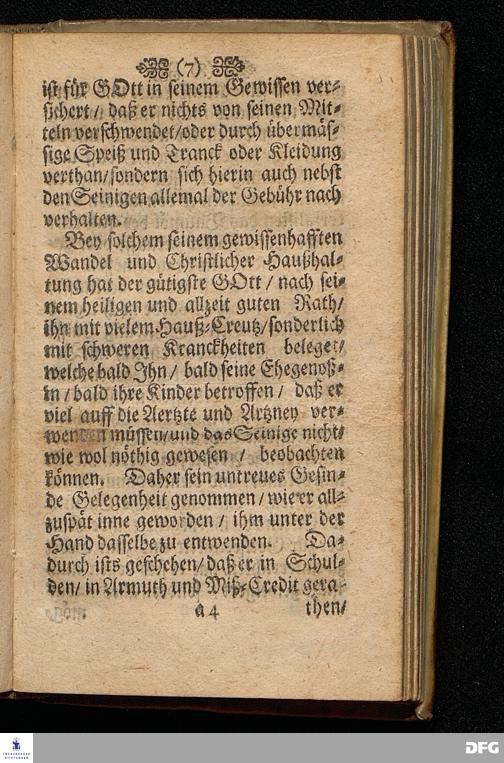 (7)
ist für GOtt in seinem Gewissen ver-
sichert/ daß er nichts von seinen Mit-
teln verschwendet/oder durch übermäs-
sige Speiß und Tranck oder Kleidung
verthan/sondern sich hierin auch nebst
den Seinigen allemal der Gebühr nach
verhalten.
Bey solchem seinem gewissenhafften
Wandel und Christlicher Haußhal-
tung hat der gütigste GOtt / nach sei-
nem heiligen und allzeit guten Rath/
ihn mit vielem Hauß-Creutz/sonderlich
mit schweren Kranckheiten beleget/
welche bald Ihn / bald seine Ehegenoß-
in / bald ihre Kinder betroffen / daß er
viel auff die Aertzte und Artzney ver-
wenden müssen/und das Seinige nicht/
wie wol nöthig gewesen / beobachten
können. Daher sein untreues Gesin-
de Gelegenheit genommen / wie er all-
zuspät inne geworden / ihm unter der
Hand dasselbe zu entwenden. Da-
durch ists geschehen/daß er in Schul-
den/in Armuth und Miß-Credit gera-
a 4 then/
FRANCKESCHE
STIFTUNGEN
DFG